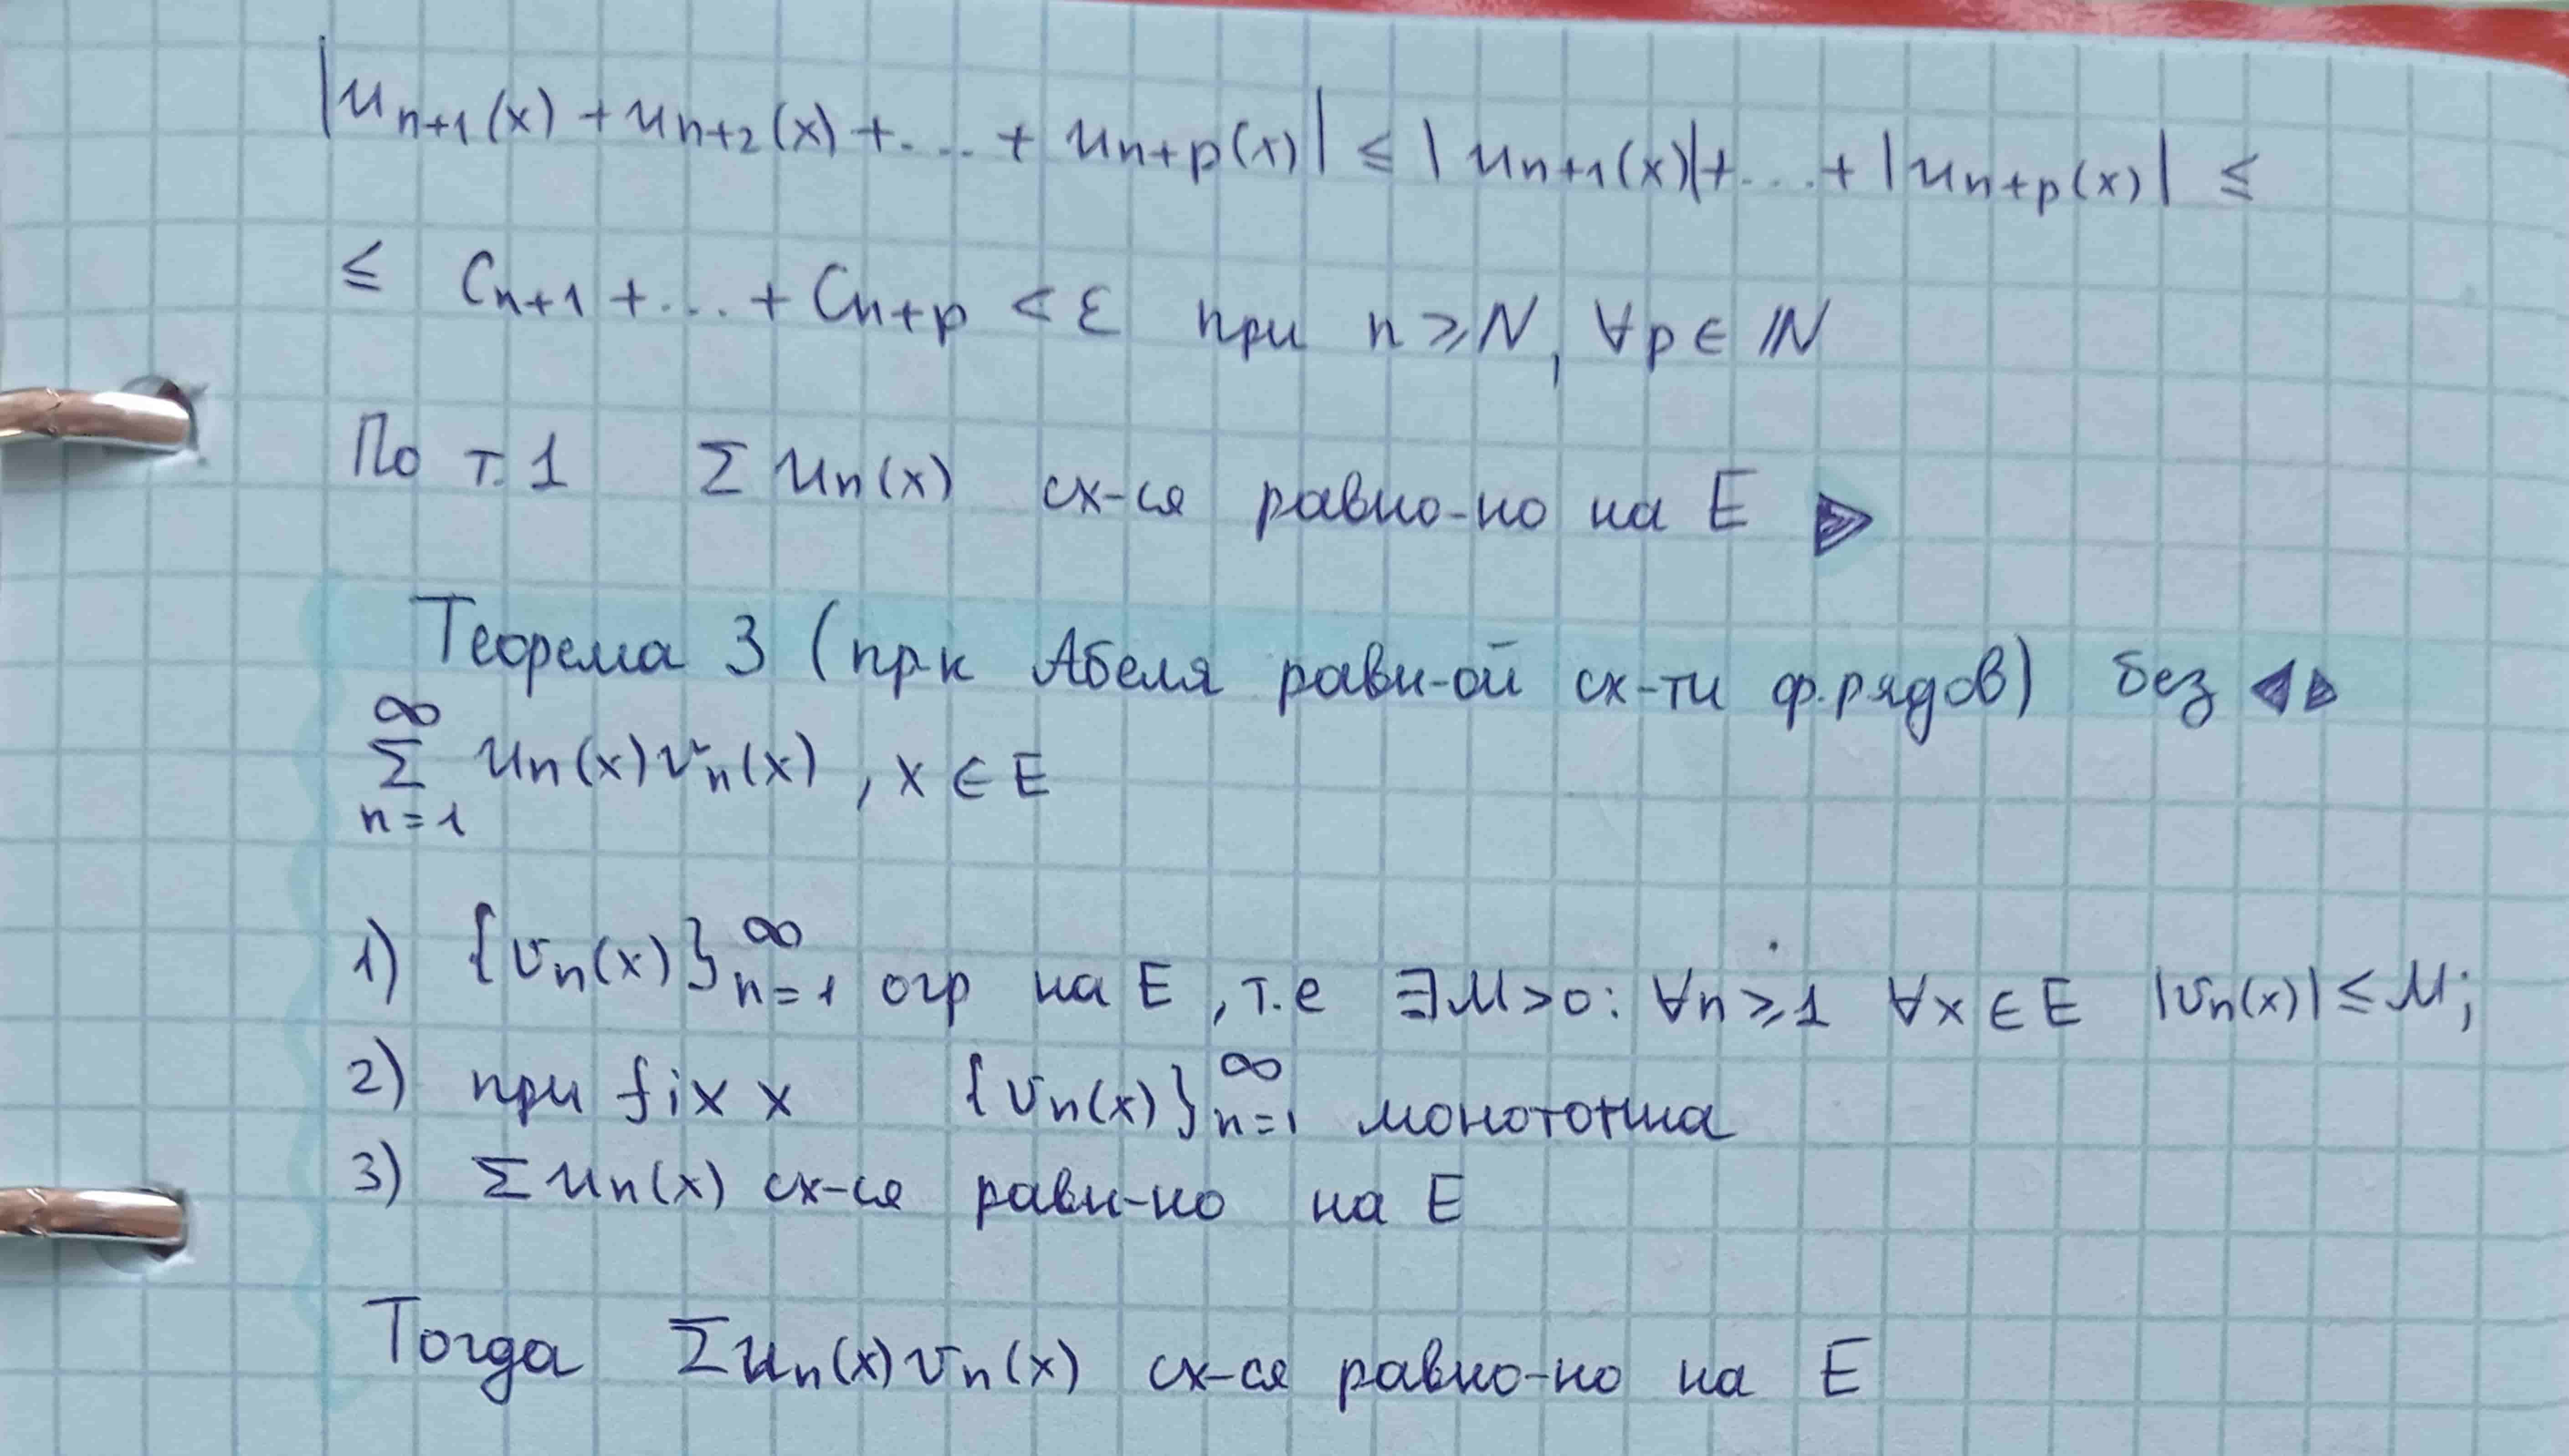 |u_{n+1}(x) + u_{n+2}(x) + ... + u_{n+p}(x)| ≤ |u_{n+1}(x)| + ... + |u_{n+p}(x)| ≤
≤ C_{n+1} + ... + C_{n+p} < ε при n ≥ N, ∀p ∈ ℕ
По т.1 Σ u_n(x) сх-ся равно-но на E ▶
Теорема 3 (пр.к Абеля равн-ой сх-ти ф.рядов) без ◀▶
∞
Σ u_n(x)v_n(x), x ∈ E
n=1
1) {v_n(x)}_{n=1}^∞ огр на E, т.е ∃M>0: ∀n≥1 ∀x∈E |v_n(x)| ≤ M;
2) при fix x {v_n(x)}_{n=1}^∞ монотонна
3) Σ u_n(x) сх-ся равн-но на E
Тогда Σ u_n(x)v_n(x) сх-ся равно-но на E